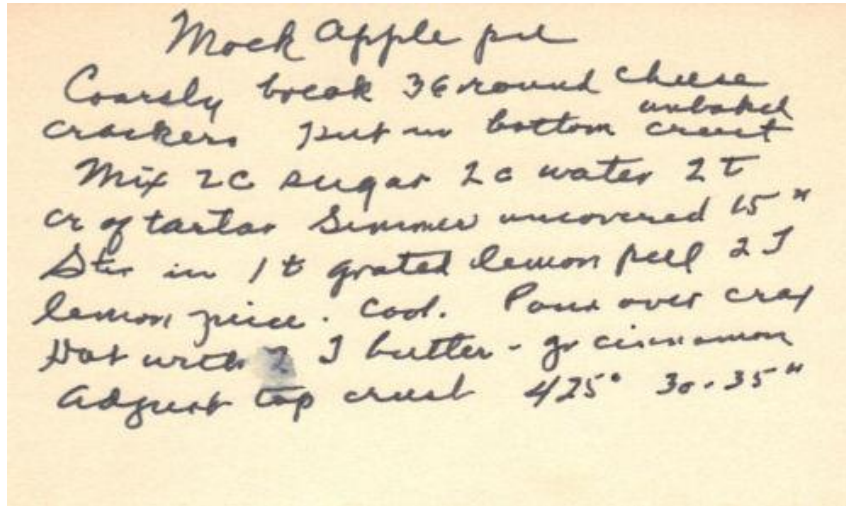 Mock Apple pie
Coarsly break 36 round cheese
crackers Put in bottom unbaked crust
Mix 2c sugar 2c water 2t
cr of tartar Simmer uncovered 15"
Stir in 1t grated lemon peel 2T
lemon juice. Cool. Pour over crax
Dot with 2 T butter - gr cinnamon
Adjust top crust 425° 30-35"